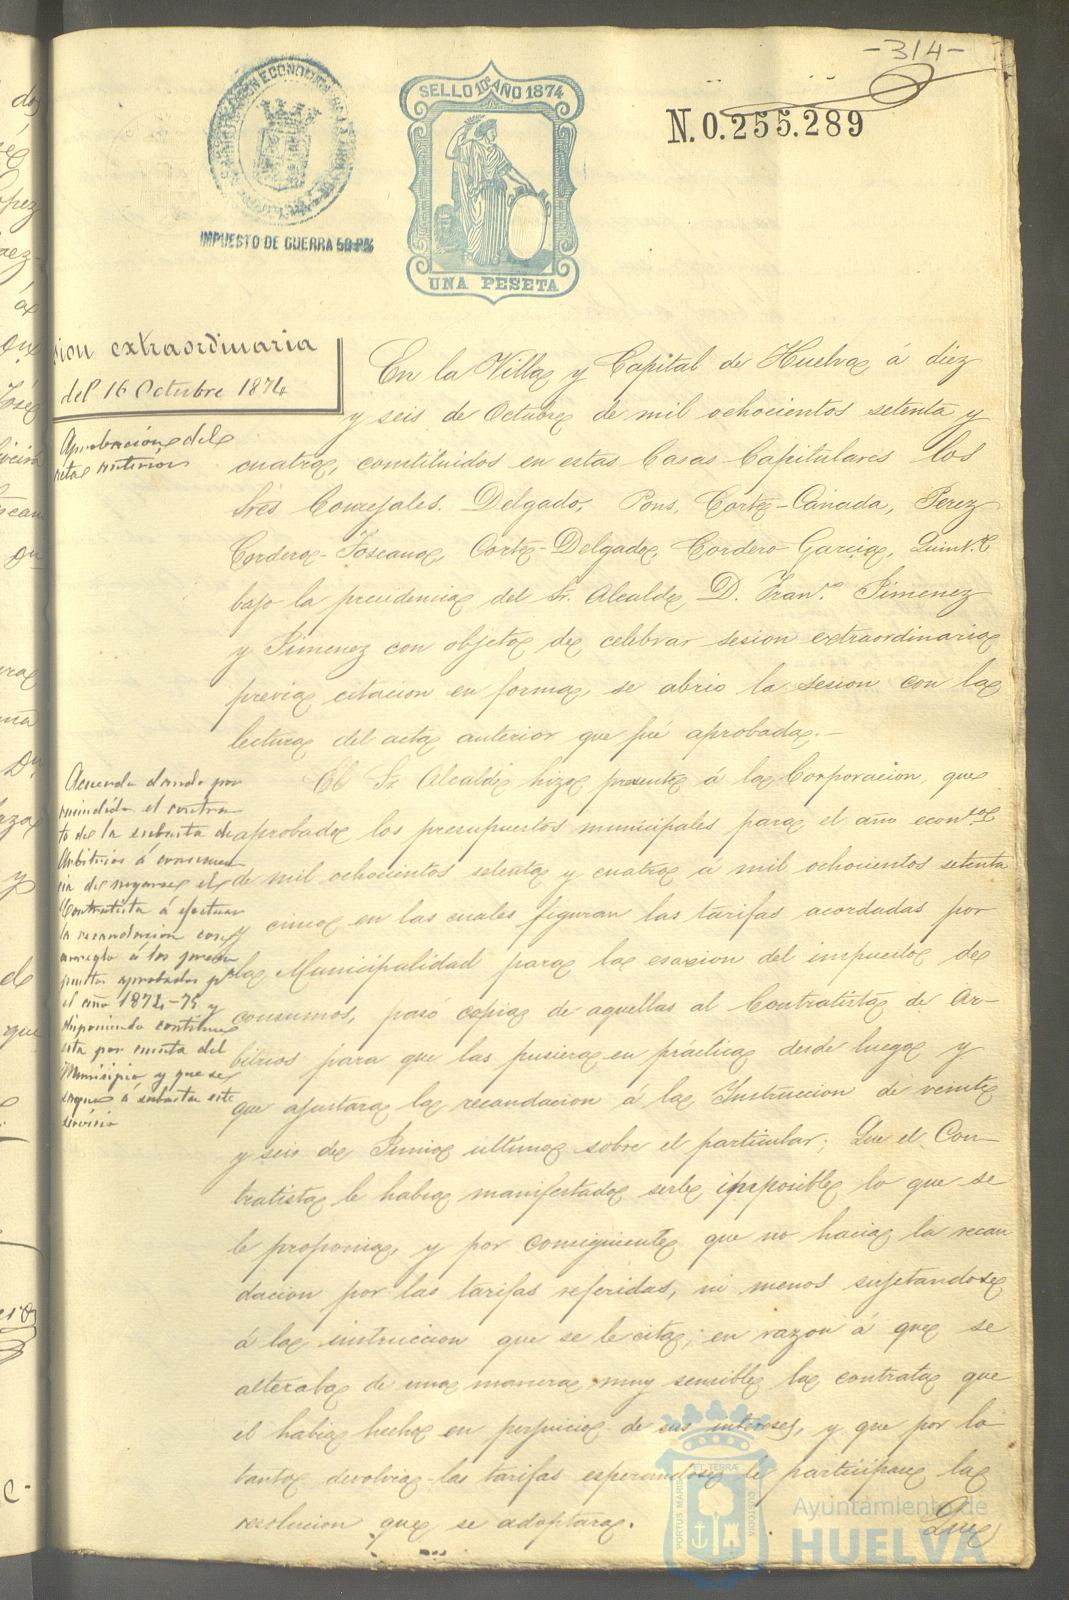 -314-
SELLO 10º AÑO 1874
UNA PESETA
IMPUESTO DE GUERRA 50 P%
N.0.255.289
sion extraordinaria
del 16 Octubre 1874
Aprobacion del
acta anterior
En la Villa y Capital de Huelva á diez
y seis de Octubre de mil ochocientos setenta y
cuatro, constituidos en estas Casas Capitulares los
Sres Concejales. Delgado, Pons, Corte-Cañada, Perez
Cordero-Toscano, Corte-Delgado, Cordero Garcia, Quint.º
bajo la presidencia del Sr. Alcalde D. Fran.co Jimenez
y Jimenez con objeto de celebrar sesion extraordinaria
previa citacion en forma, se abrio la sesion con la
lectura del acta anterior que fué aprobada.-
Acuerdo dando por
rescindido el contra
to de la subasta de
Arbitrios á consecuen
cia de negarse el
Contratista á efectuar
la recaudacion con
arreglo á los presu
puestos aprobados pª
el año 1874-75 y
disponiendo continue
esta por cuenta del
Municipio y que se
saque á subasta este
servicio
El Sr Alcalde hizo presente á la Corporacion, que
aprobado los presupuestos municipales para el año econ.co
de mil ochocientos setenta y cuatro á mil ochocientos setenta
y cinco en las cuales figuran las tarifas acordadas por
la Municipalidad para la esaccion del impuesto de
consumos, pasó copia de aquellas al Contratista de Ar-
bitrios para que las pusiera en práctica desde luego y
que ajustara la recaudacion á la Instruccion de veinte
y seis de Junio ultimo sobre el particular; Que el Con-
tratista le habia manifestado serle imposible lo que se
le proponia, y por consiguiente que no hacia la recau
dacion por las tarifas referidas, ni menos sujetandose
á la instruccion que se le cita, en razon á que se
alteraba de una manera muy sensible la contrata que
el habia hecho en perjuicio de sus intereses, y que por lo
tanto devolvia las tarifas esperandose le participara la
resolucion que se adoptara.
Que
PORTUS MARIS ET TERRÆ CUSTODIA
Ayuntamiento de
HUELVA